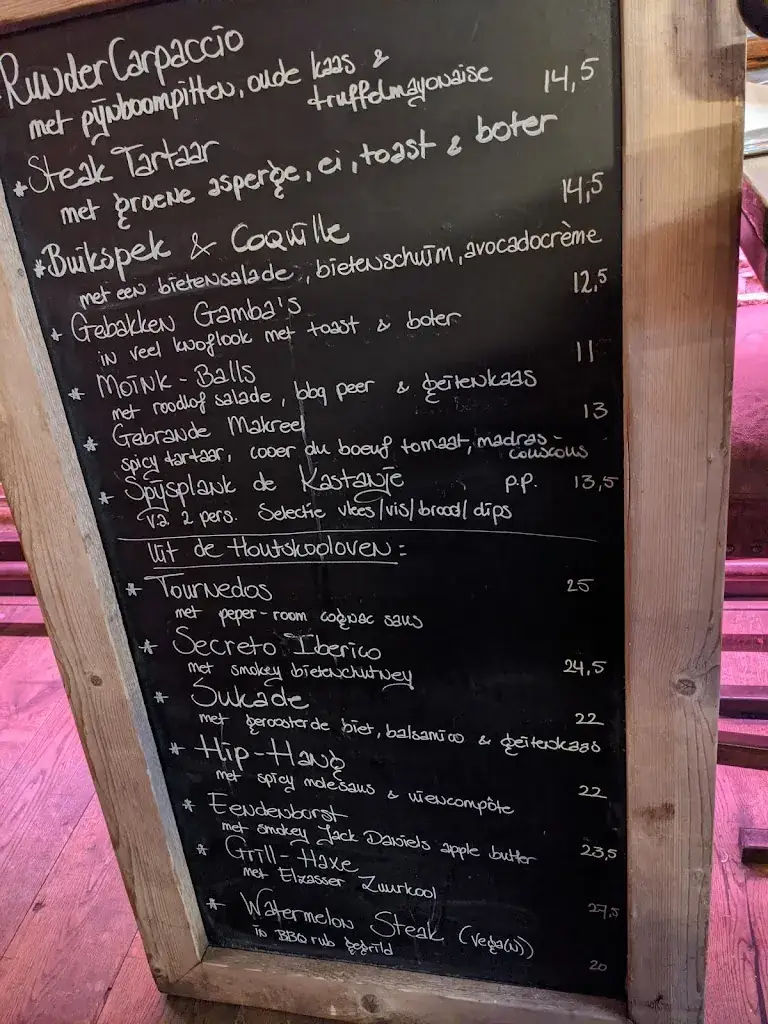 Runder Carpaccio
met pijnboompitten, oude kaas &
truffelmayonaise 14,5
* Steak Tartaar
met groene asperge, ei, toast & boter
14,5
* Buikspek & Coquille
met een bietensalade, bietenschuim, avocadocrème
12,5
* Gebakken Gamba's
in veel knoflook met toast & boter
11
* Moink-Balls
met roodlof salade, bbq peer & geitenkaas
13
* Gebrande Makreel
spicy tartaar, coeer du boeuf tomaat, madras-
couscous
* Spijsplank de Kastanje p.p. 13,5
va 2 pers. Selectie vlees/vis/brood/dips
Uit de Houtskooloven:
* Tournedos 25
met peper-room cognac saus
* Secreto Iberico
met smokey bietenchutney 24,5
* Sukade
met geroosterde biet, balsamico & geitenkaas 22
* Hip-Hang
met spicy molesaus & uiencompôte 22
* Eendenborst
met smokey Jack Daniels apple butter 23,5
* Grill-Haxe
met Elzasser Zuurkool
27,5
* Watermelon Steak (vega(n))
in BBQ rub gegrild
20